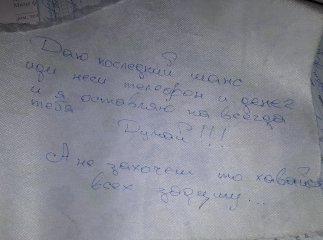 Даю последний шанс
иди неси телефон и денег
и я оставляю на всегда
тебя
Думай!!!
А не захочеш то ховайся
всех задушу...